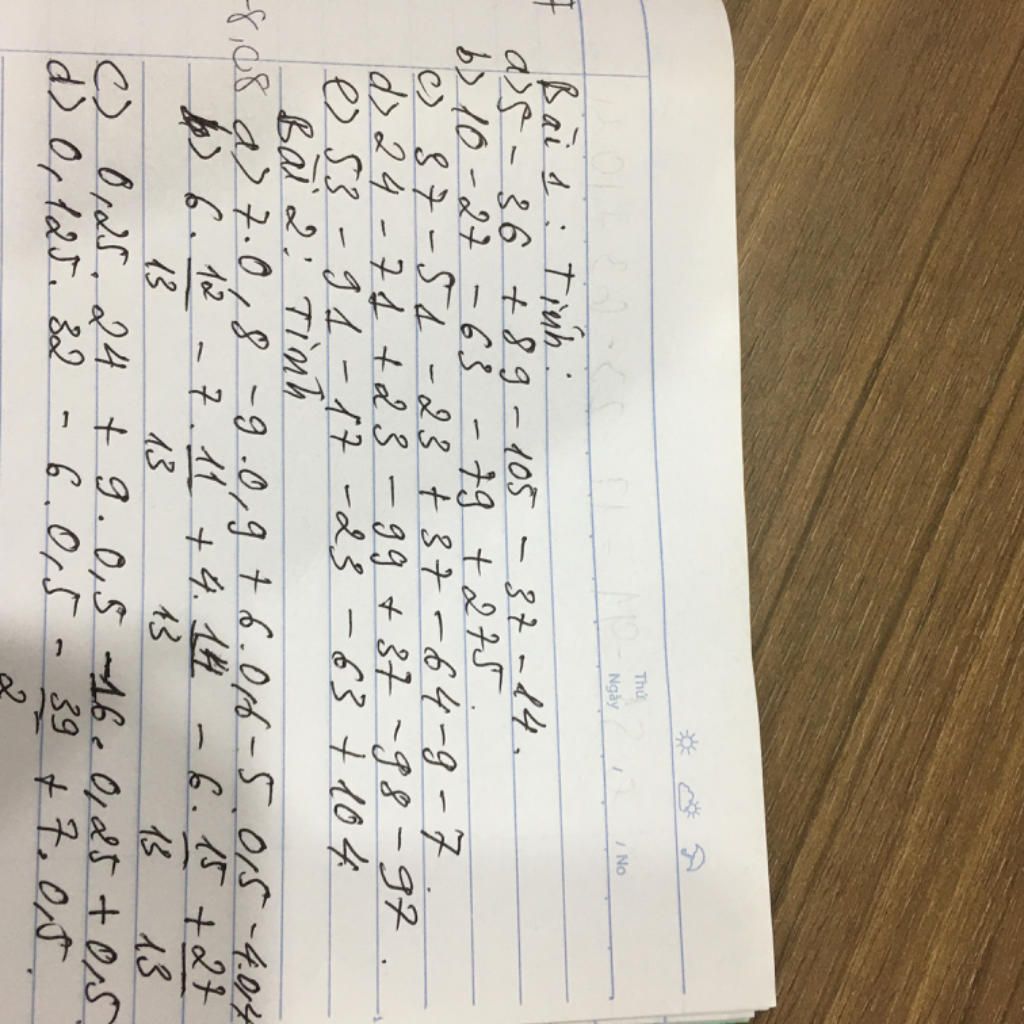 Thứ
Ngày , No
Bài 1 : Tính :
a) 5 - 36 + 89 - 105 - 37 - 14 .
b) 10 - 27 - 63 - 79 + 275 .
c) 87 - 51 - 23 + 37 - 64 - 9 - 7
d) 24 - 71 + 23 - 99 + 37 - 98 - 97 .
e) 53 - 91 - 17 - 23 - 63 + 104
Bài 2 : Tính
-8,08 a) 7.0,8 - 9.0,9 + 6.0,6 - 5.0,5 - 4.0,4
b) 6. 12/13 - 7. 11/13 + 4. 14/13 - 6. 15/13 + 27/13
c) 0,25. 24 + 9. 0,5 - 16. 0,25 + 0,5
d) 0,125. 32 - 6. 0,5 - 39/2 + 7. 0,5 .